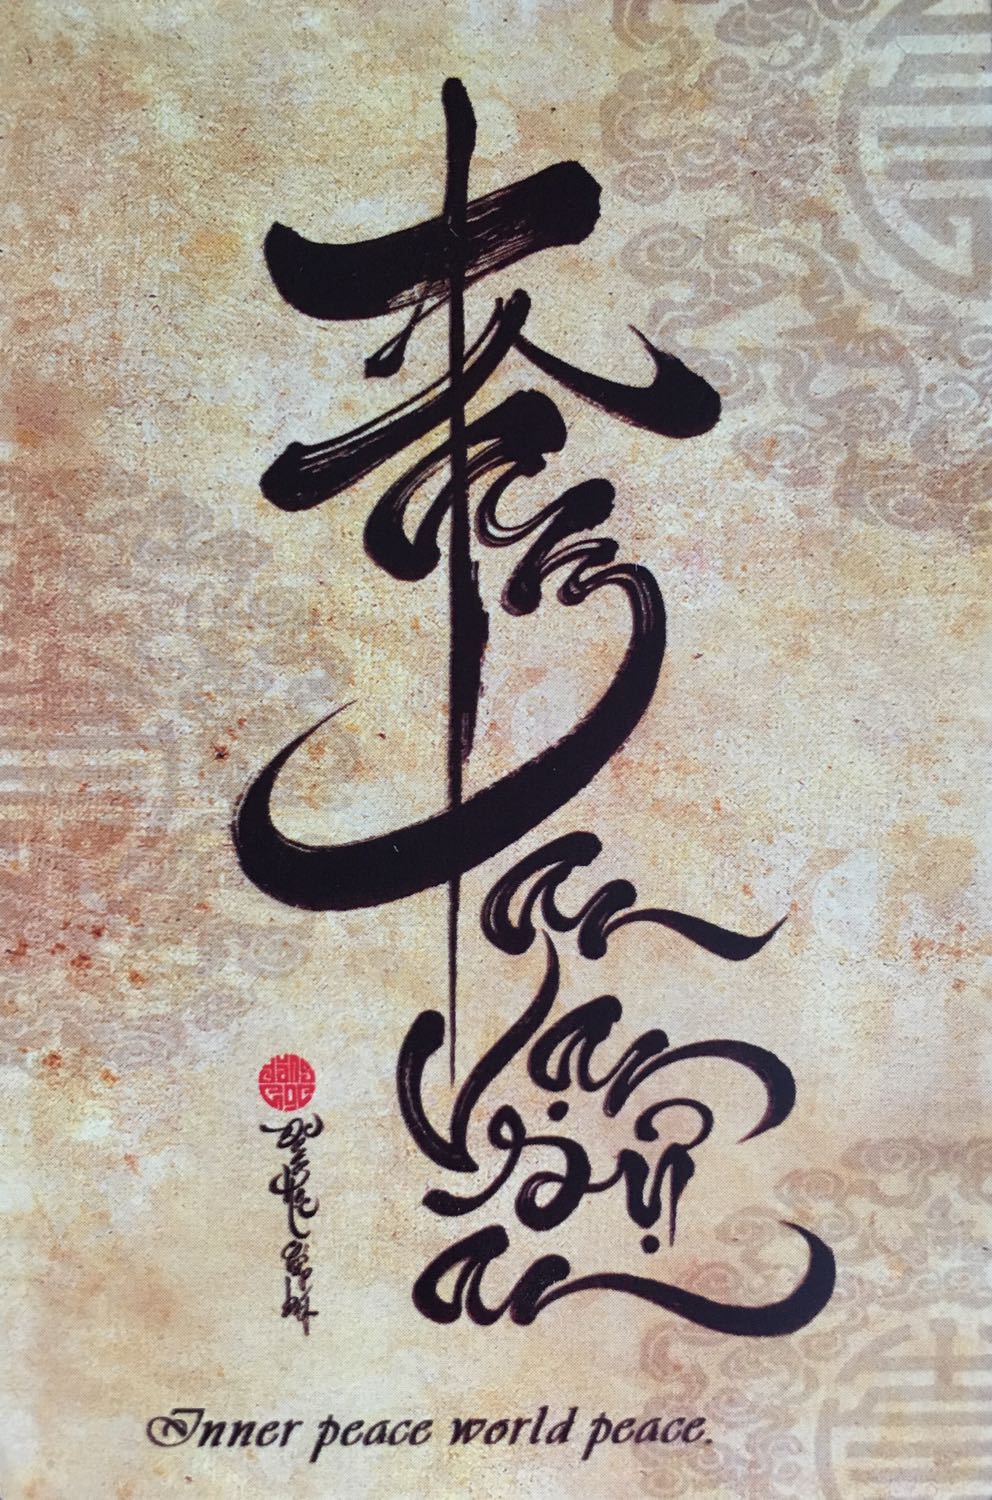 Tâm
an
vạn
sự
an
Inner peace world peace.